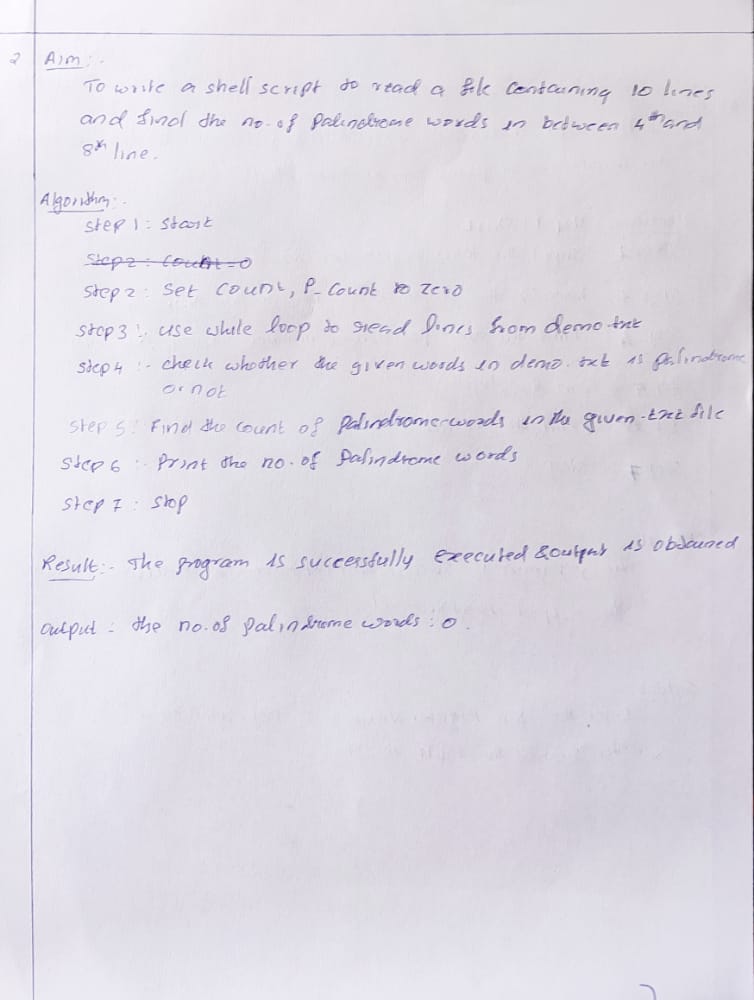 2 Aim :-
To write a shell script to read a file containing 10 lines
and find the no. of palindrome words in between 4th and
8th line.
Algorithm :-
Step 1 : Start
Step 2 : Count = 0
Step 2 : Set Count, P_Count to zero
Step 3 :. use while loop to read lines from demo.txt
Step 4 :- check whether the given words in demo.txt is palindrome
or not
Step 5 : Find the count of palindrome words in the given .txt file
Step 6 :- Print the no. of palindrome words
Step 7 : Stop
Result :- The program is successfully executed & output is obtained
Output : the no. of palindrome words : 0.